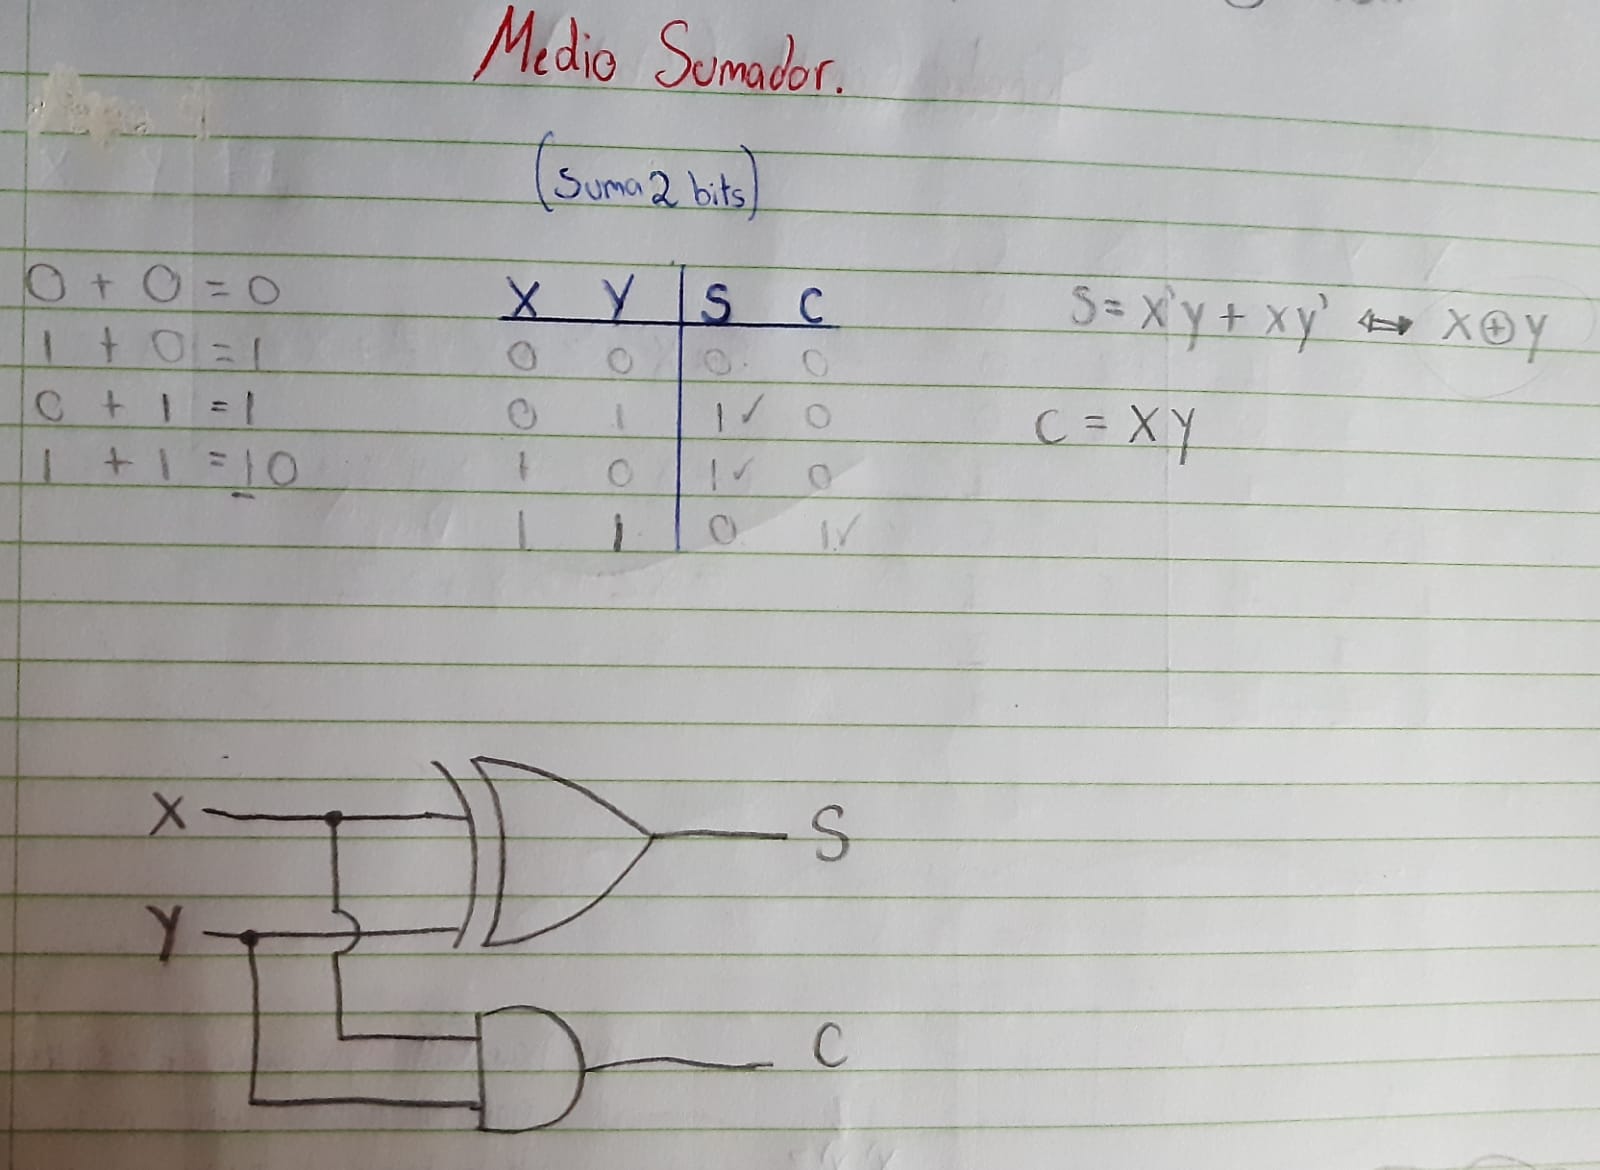 Medio Sumador.
(Suma 2 bits)
0 + 0 = 0
1 + 0 = 1
0 + 1 = 1
1 + 1 = 10
X Y | S C
0 0 | 0 0
0 1 | 1✓ 0
1 0 | 1✓ 0
1 1 | 0 1✓
S = X'Y + XY' ⇔ X⊕Y
C = XY
X
S
Y
C